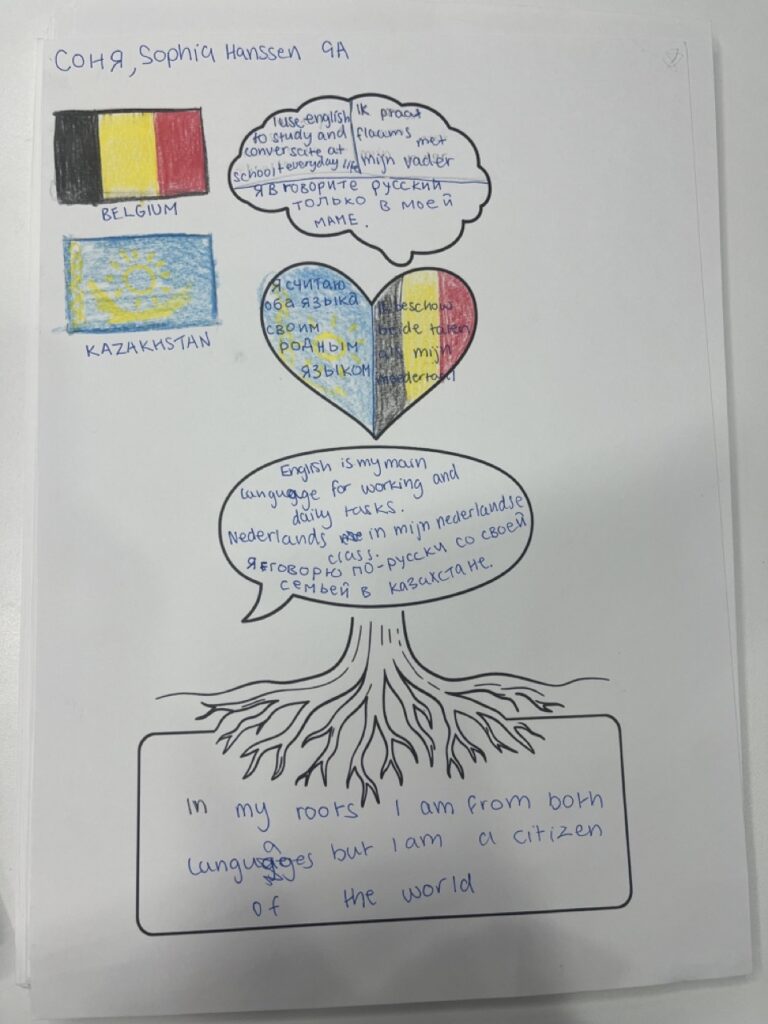 СОНЯ, Sophia Hanssen 9A
BELGIUM
KAZAKHSTAN
I use english
to study and
converscite at
school + everyday life
Ik praat
flaams met
mijn vader
Я в говорите русский
только в моей
маме.
Я считаю
оба языка
своим
родным
языком
Ik beschow
beide talen
als mijn
moedertaal
English is my main
language for working and
daily tasks.
Nederlands in mijn nederlandse
class.
Я говорю по-русски со своей
семьей в казахстане.
In my roots I am from both
languages but I am a citizen
of the world